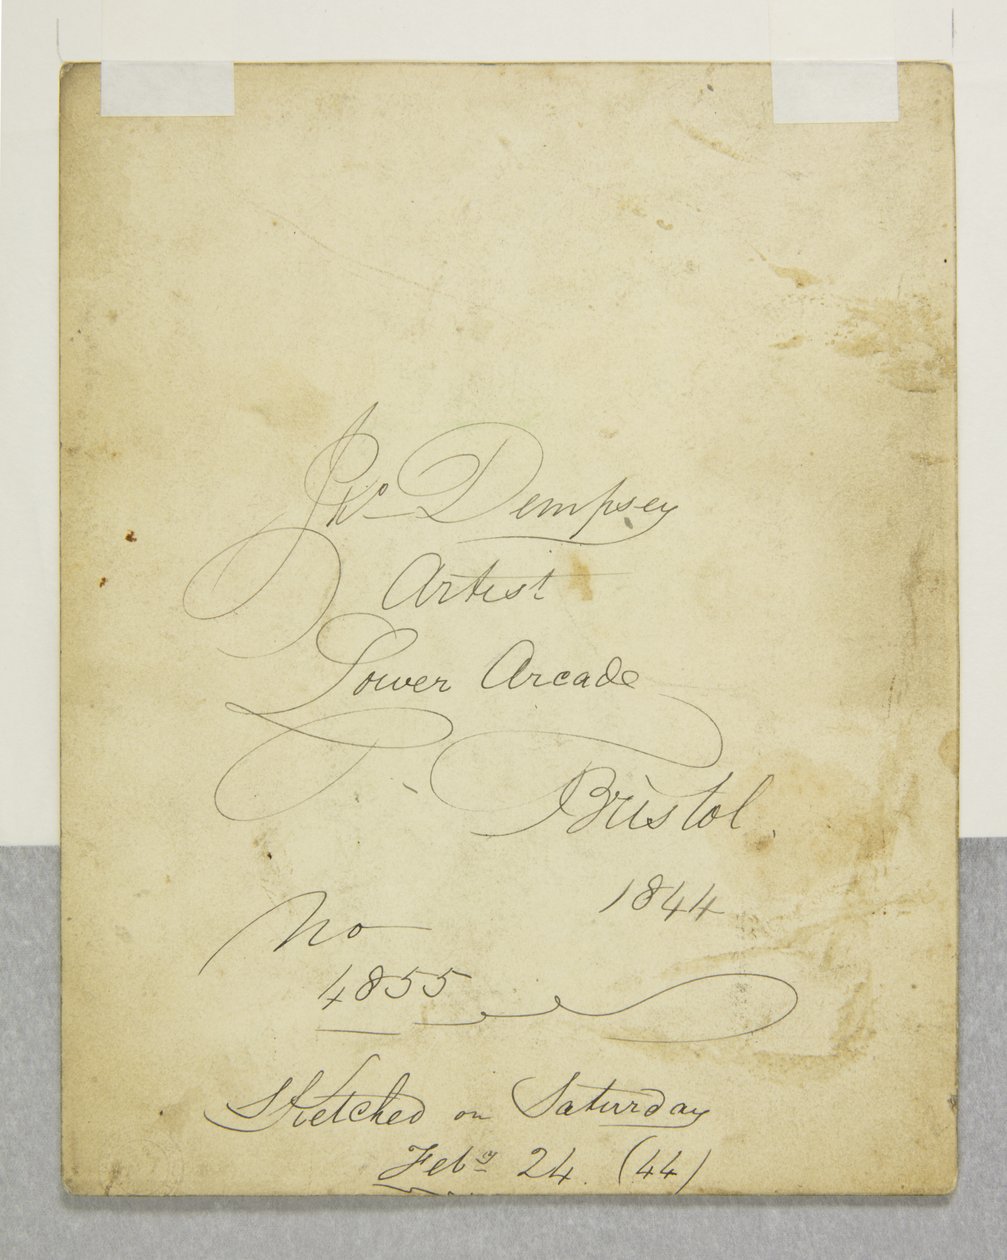 Jno Dempsey
Artist
Lower Arcade
Bristol.
1844
No
4855
Sketched on Saturday
Feby 24. (44)